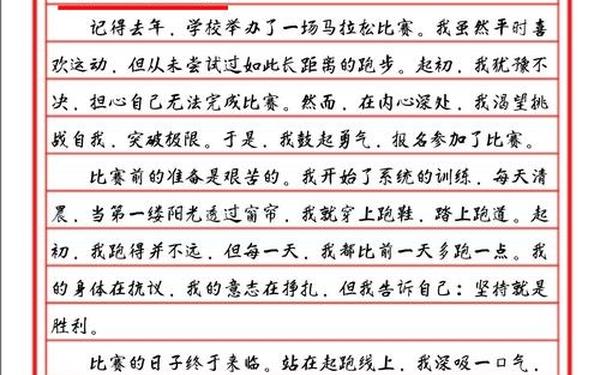 记得去年，学校举办了一场马拉松比赛。我虽然平时喜
欢运动，但从未尝试过如此长距离的跑步。起初，我犹豫不
决，担心自己无法完成比赛。然而，在内心深处，我渴望挑
战自我，突破极限。于是，我鼓起勇气，报名参加了比赛。
比赛前的准备是艰苦的。我开始了系统的训练，每天清
晨，当第一缕阳光透过窗帘，我就穿上跑鞋，踏上跑道。起
初，我跑得并不远，但每一天，我都比前一天多跑一点。我
的身体在抗议，我的意志在挣扎，但我告诉自己：坚持就是
胜利。
比赛的日子终于来临。站在起跑线上，我深吸一口气，